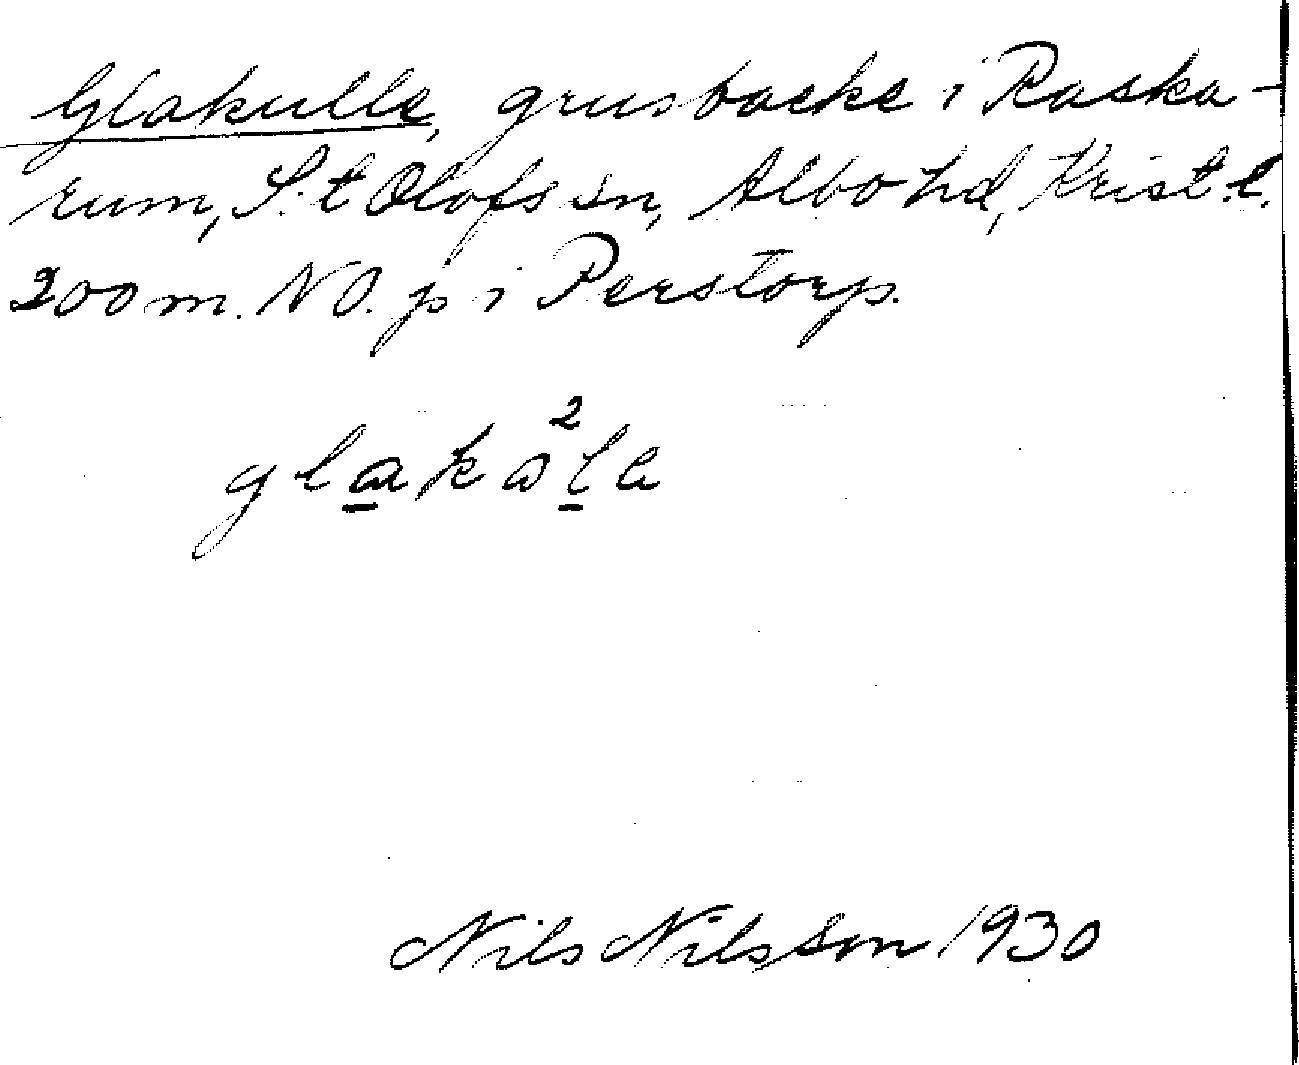 Glakulle, grusbacke i Raska-
rum, S:t Olofs sn, Albo hd, Krist. l.
200 m. NO. p i Perstorp.
glakå²la
Nils Nilsson 1930